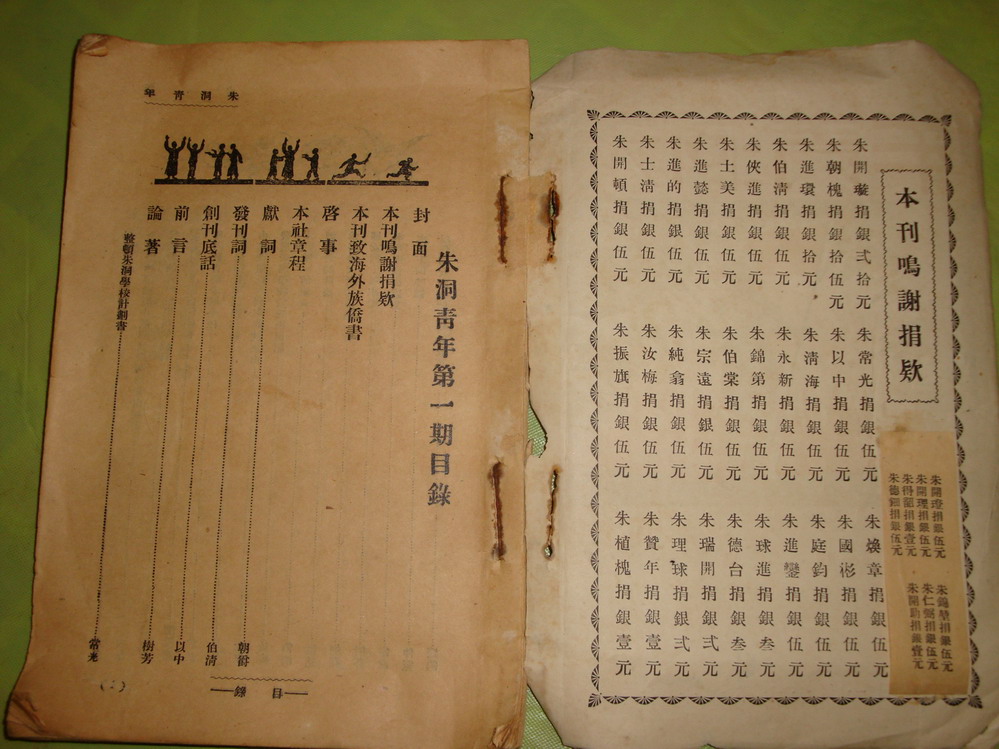 本刊鳴謝捐欵
朱開璇捐銀弍拾元
朱朝槐捐銀拾伍元
朱進環捐銀拾元
朱伯清捐銀拾元
朱俠進捐銀伍元
朱士美捐銀伍元
朱進懿捐銀伍元
朱進的捐銀伍元
朱士清捐銀伍元
朱開頓捐銀伍元
朱常光捐銀伍元
朱以中捐銀伍元
朱清海捐銀伍元
朱永新捐銀伍元
朱錦第捐銀伍元
朱伯棠捐銀伍元
朱宗遠捐銀伍元
朱純翕捐銀伍元
朱汝梅捐銀伍元
朱振旗捐銀伍元
朱煥章捐銀伍元
朱國彬捐銀伍元
朱庭鈞捐銀伍元
朱進鑾捐銀伍元
朱球進捐銀叁元
朱德台捐銀叁元
朱瑞開捐銀弍元
朱理球捐銀弍元
朱贊年捐銀壹元
朱植槐捐銀壹元
朱開澄捐銀伍元
朱開理捐銀伍元
朱得韶捐銀壹元
朱德鈿捐銀伍元
朱錦壁捐銀伍元
朱仁盤捐銀伍元
朱開勛捐銀壹元
朱洞青年
朱洞靑年第一期目錄
封面
本刊鳴謝捐欵
本刊致海外族僑書
啓事
本社章程
獻詞
發刊詞 朝
創刊底話 伯清
前言 以中
論著 樹芳
整頓朱洞學校計劃書 常光
目錄